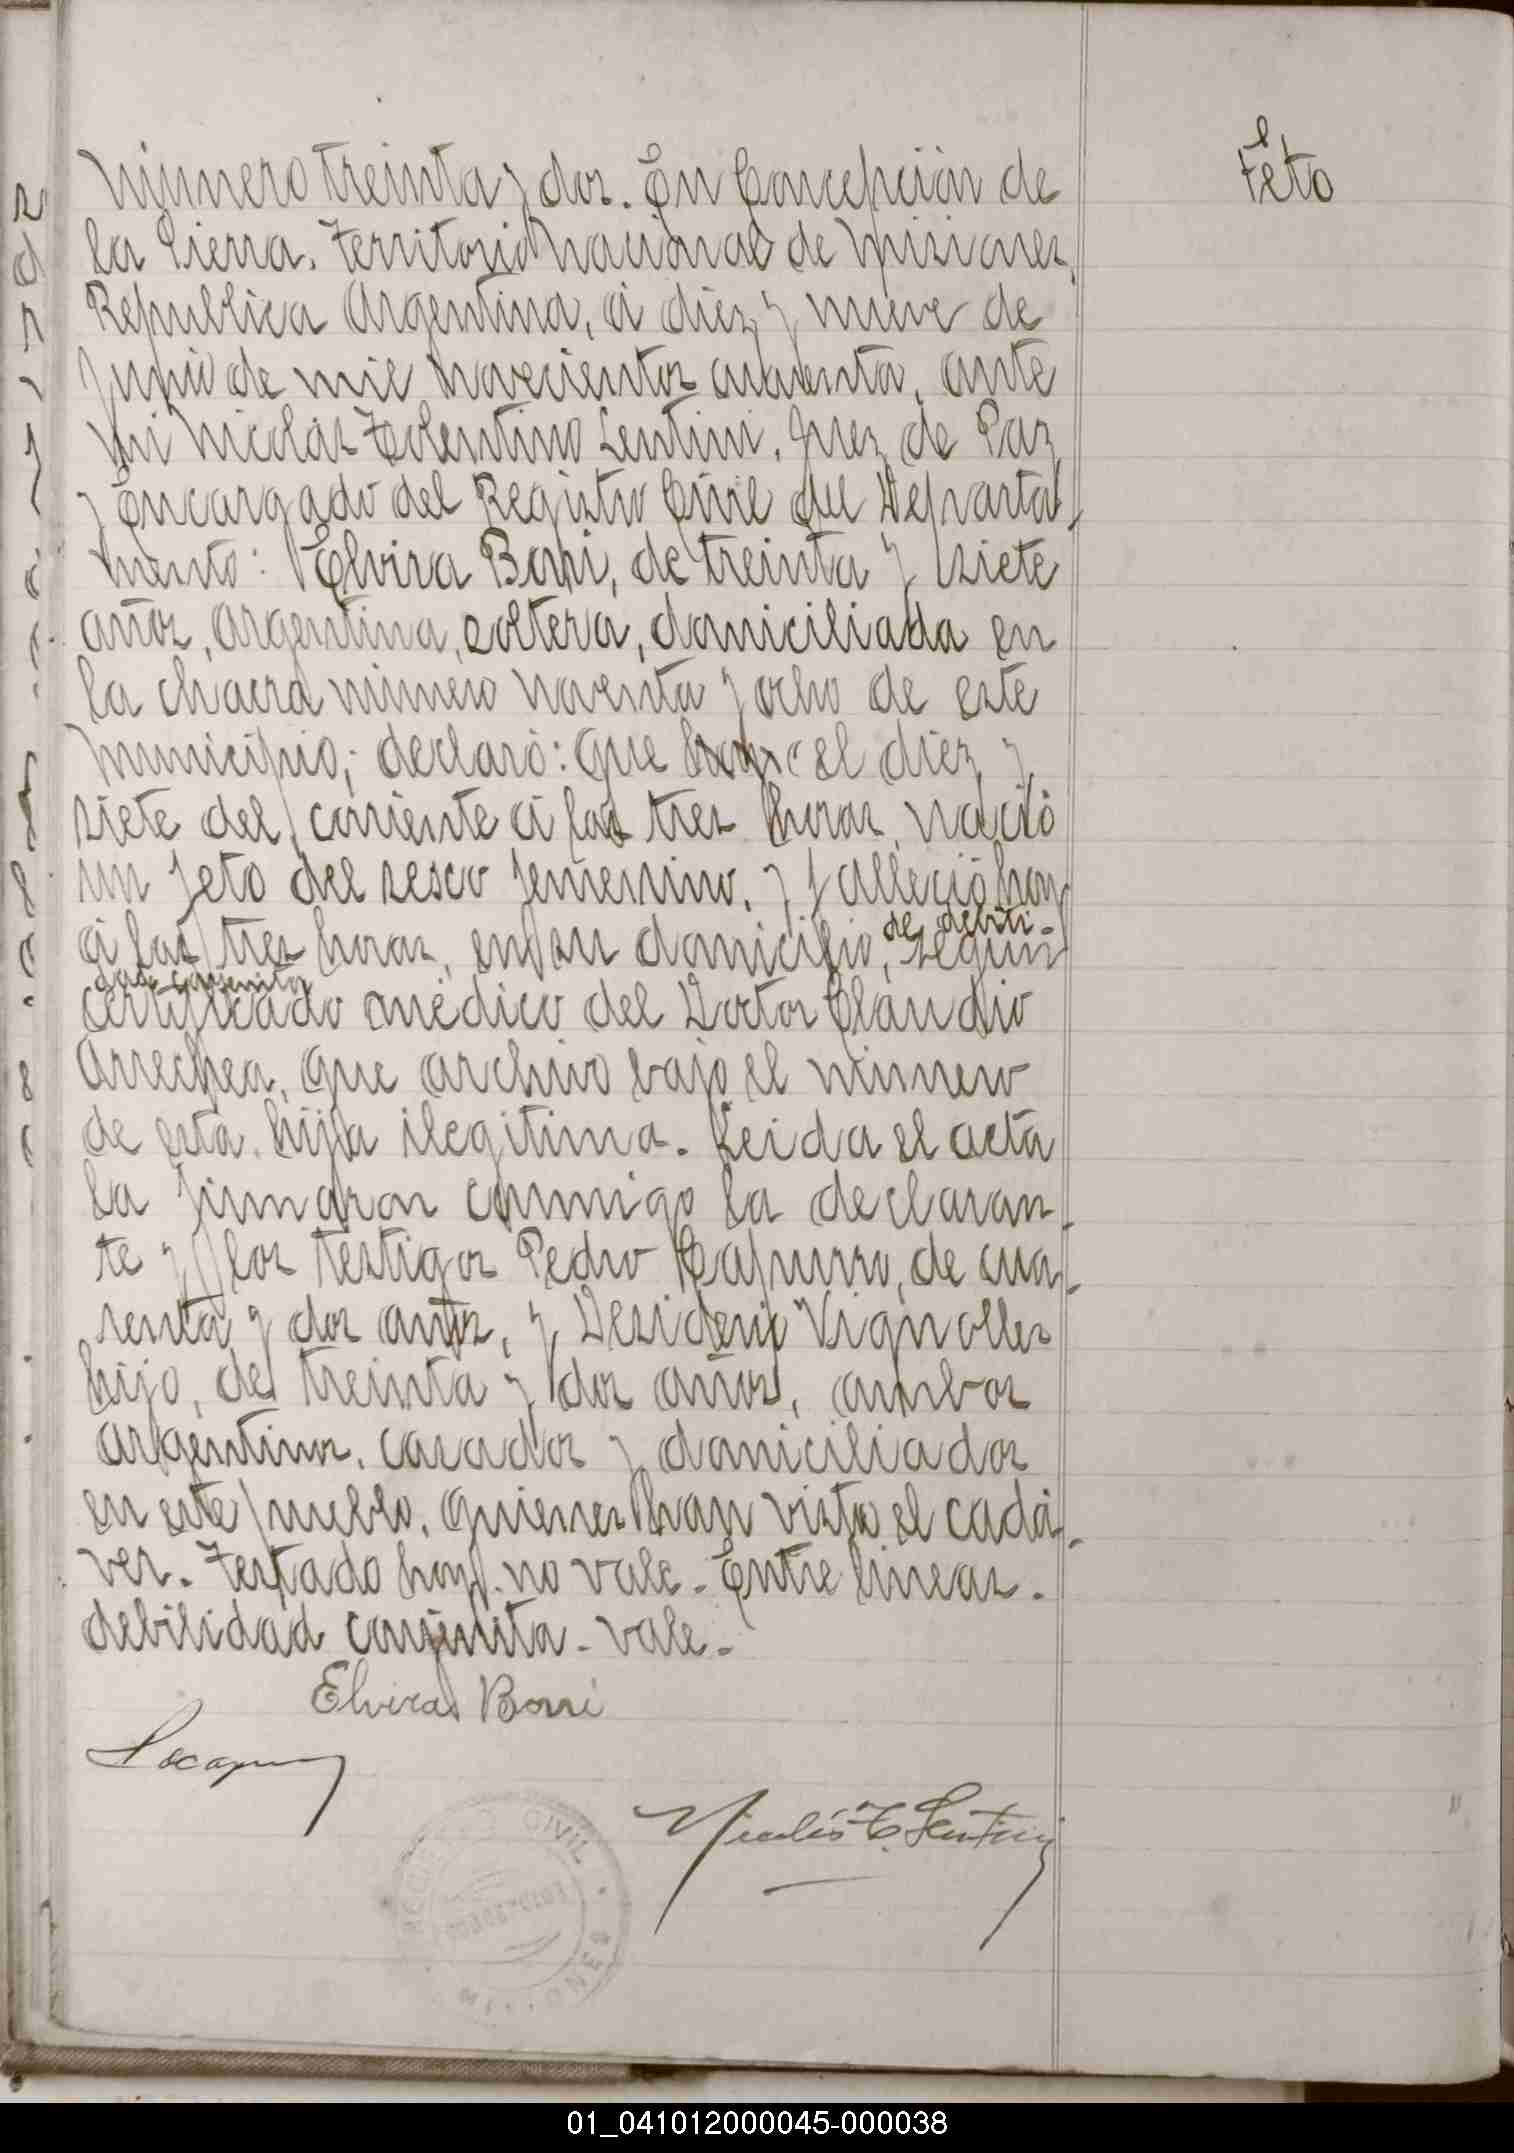 Feto
Número treinta y dos. En Concepción de
la Sierra, Territorio Nacional de Misiones,
Republica Argentina, á diez y nueve de
Junio de mil novecientos cuarenta, ante
mi Nicolás Tolentino Lentini, Juez de Paz
y Encargado del Registro Civil del Departa-
mento: Elvira Borri, de treinta y siete
años, Argentina, soltera, domiciliada en
la chacra número noventa y ocho de este
Municipio; declaró: Que hoy el diez y
siete del corriente á las tres horas, nació
un feto del sexo femenino, y falleció hoy
de debili-
á las tres horas, en su domicilio, según
dad conjenita
certificado médico del Doctor Claudio
Arrechea, que archivo bajo el número
de esta. hija ilegitima. Leida el acta
la firmaron conmigo la declaran-
te y los testigos Pedro Capurro, de cua-
renta y dos años, y Desiderio Vignolles
hijo, de treinta y dos años, ambos
argentinos, casados y domiciliados
en este pueblo, quienes han visto el cadá-
ver. Testado hoy. no vale. Entre lineas.
debilidad conjenita. vale.
Elvira Borri
Nicolás T. Lentini
CIVIL
01_041012000045-000038